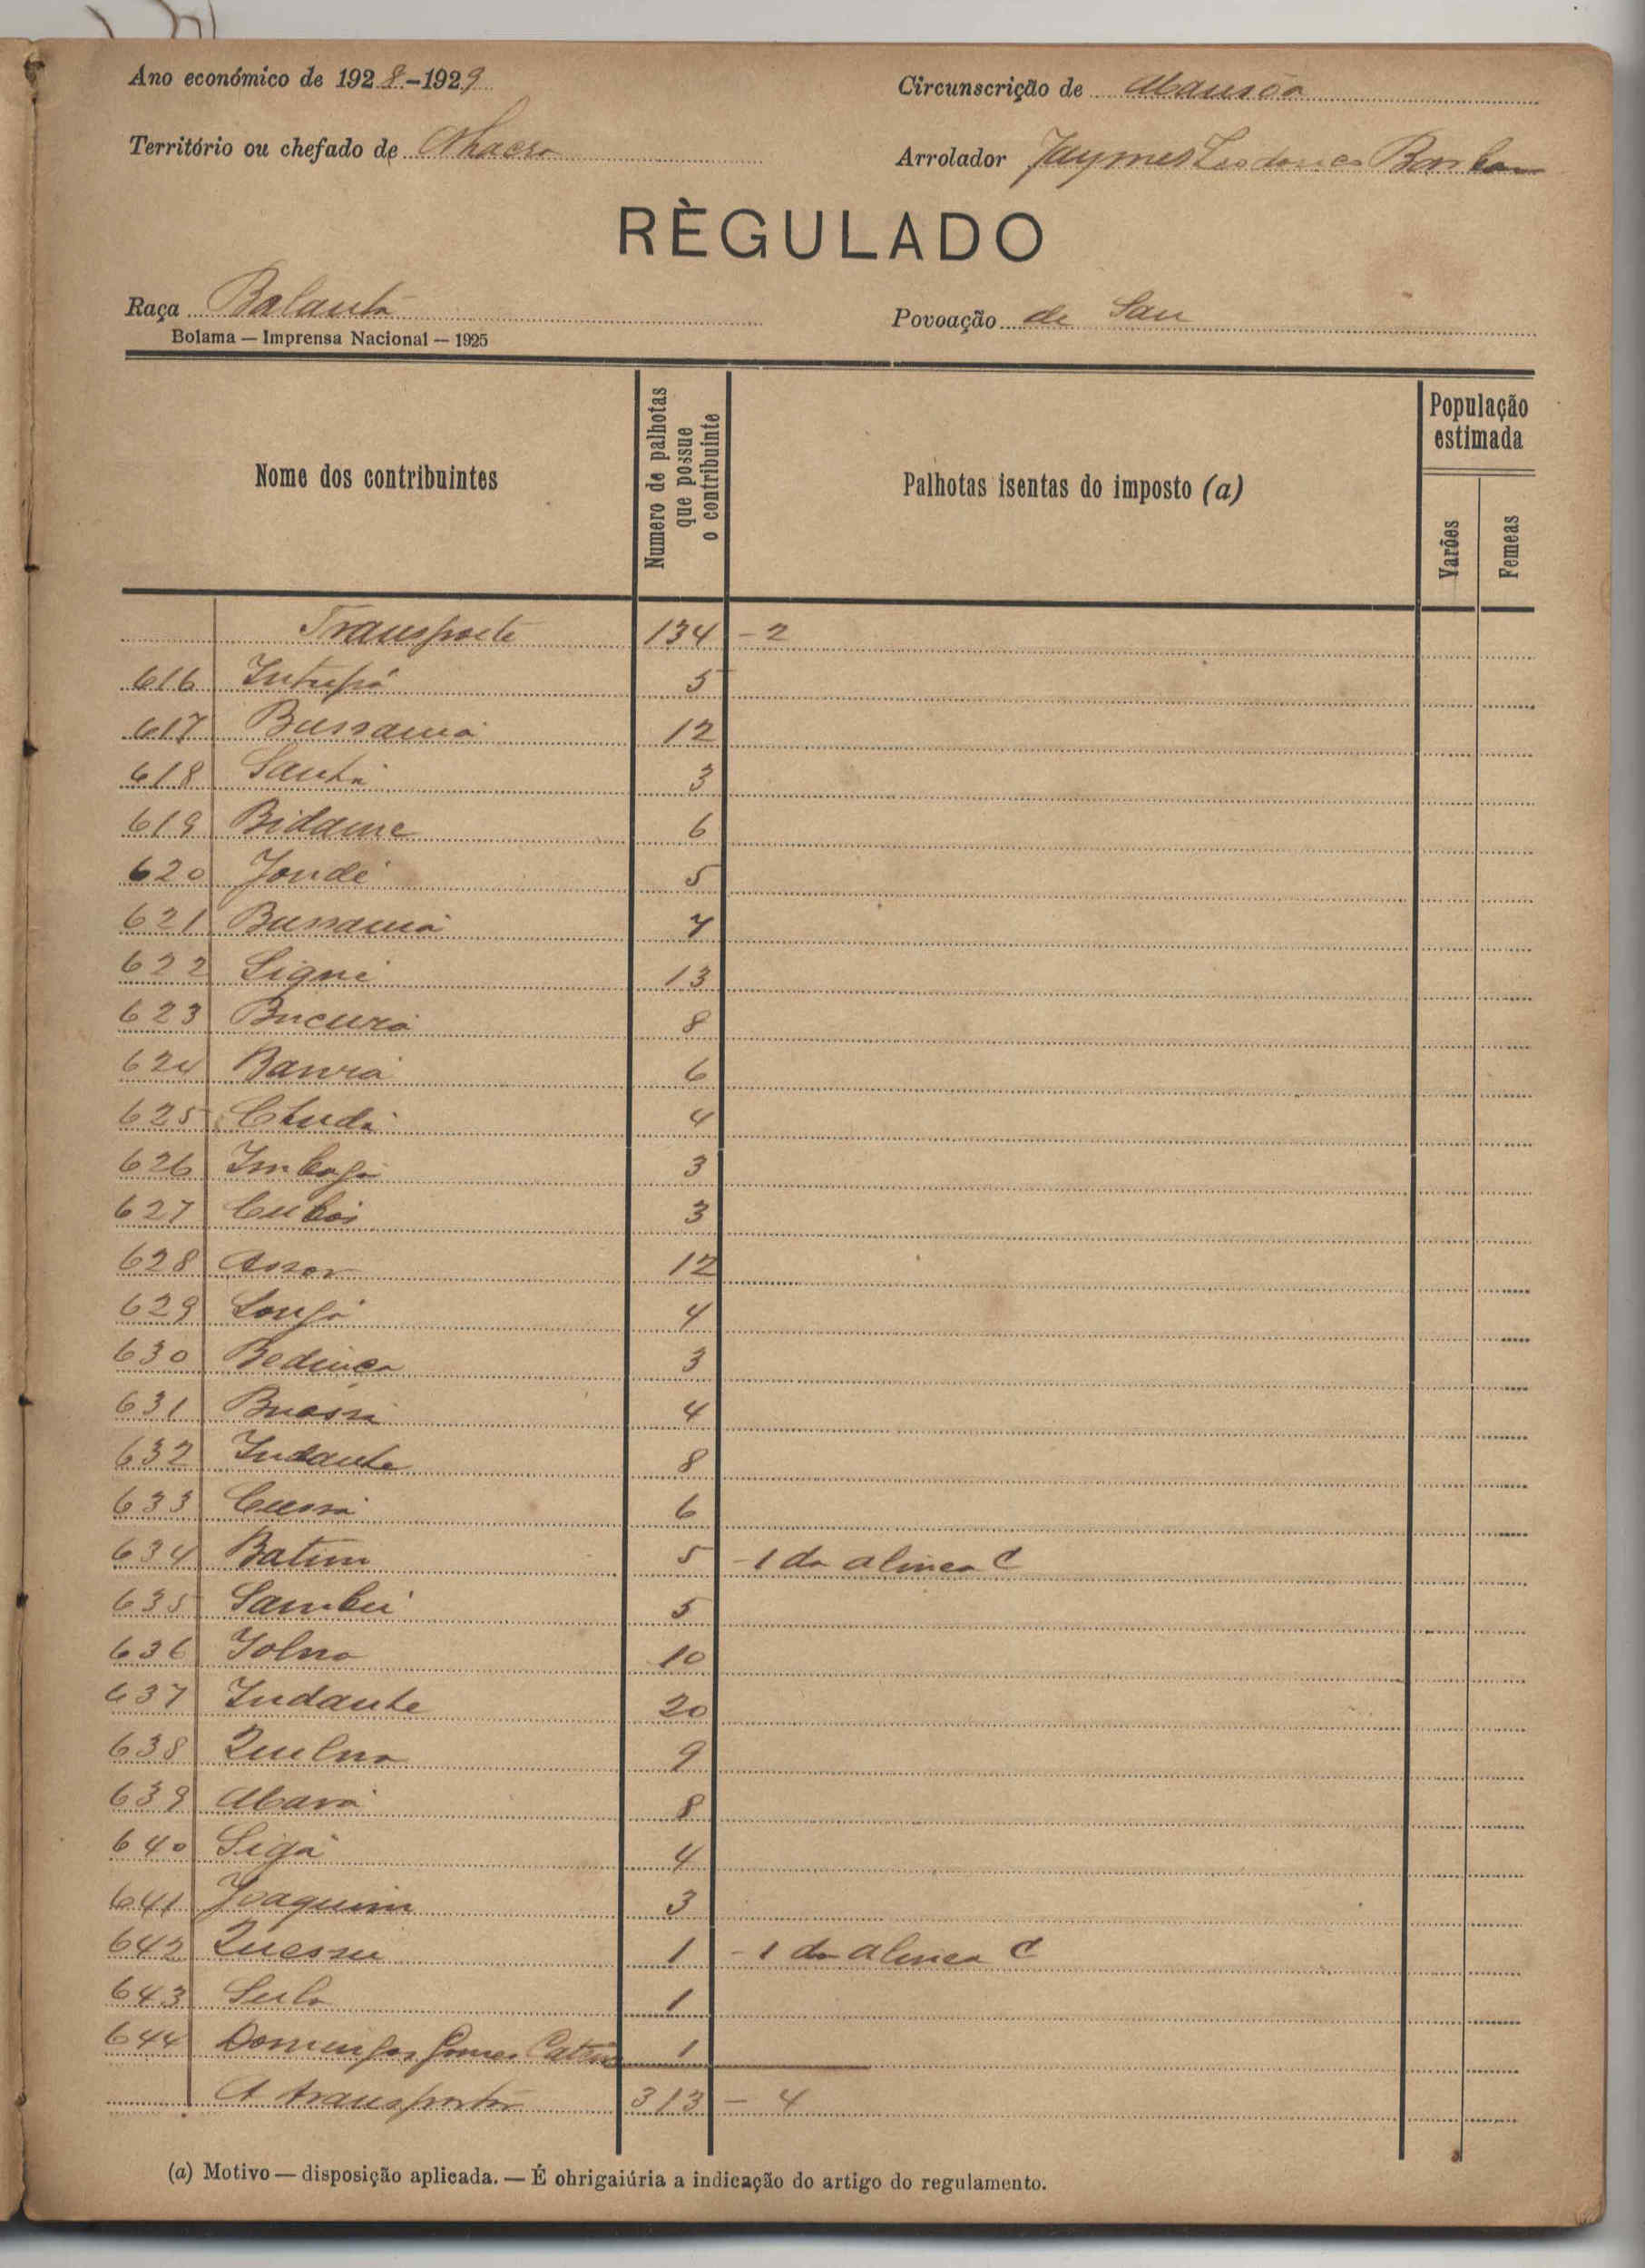 Ano económico de 1928-1929
Circunscrição de Mansôa
Território ou chefado de Nhacra
Arrolador Jaymes Barbosa
RÈGULADO
Raça Balanta
Povoação de San
Bolama — Imprensa Nacional — 1925
Nome dos contribuintes
Numero de palhotas que possue o contribuinte
Palhotas isentas do imposto (a)
População estimada
Varões
Femeas
Transporte 134 - 2
616 Intupá 5
617 Bussamá 12
618 Santá 3
619 Bidame 6
620 Jondé 5
621 Bussamá 7
622 Signé 13
623 Bucurá 8
624 Banrá 6
625 3 4
626 3
627 3
628 12
629 4
630 Bedinca 3
631 4
632 Indante 8
633 Cussá 6
634 Batim 5 - 1 da alinea C
635 Sambú 5
636 10
637 Indante 20
638 9
639 8
640 Sigá 4
641 Joaquim 3
642 Quessu 1 - 1 da alinea C
643 1
644 Domingos Gomes 1
A transportar 313 - 4
(a) Motivo — disposição aplicada. — É ohrigaiúria a indicação do artigo do regulamento.